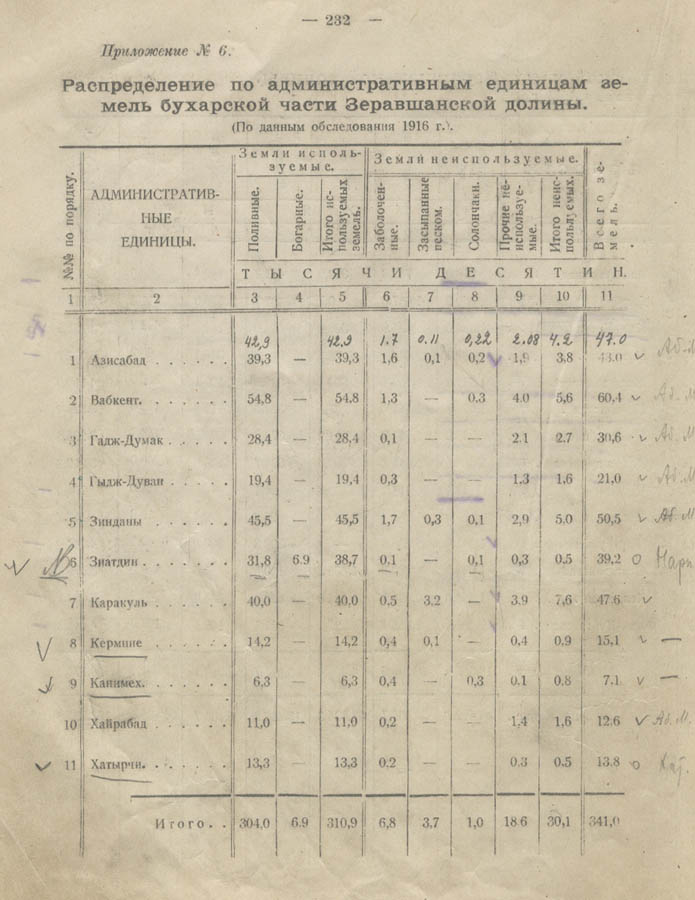 — 232 —
Приложение № 6.
Распределение по административным единицам зе-
мель бухарской части Зеравшанской долины.
(По данным обследования 1916 г.).
№№ по порядку.
АДМИНИСТРАТИВ-
НЫЕ
ЕДИНИЦЫ.
Земли исполь-
зуемые.
Земли неиспользуемые.
Поливные.
Богарные.
Итого ис-
пользуемых
земель.
Заболочен-
ные.
Засыпанные
песком.
Солончаки.
Прочие не-
используе-
мые.
Итого неис-
пользуемых.
Всего зе-
мель.
ТЫСЯЧИ ДЕСЯТИН.
1 2 3 4 5 6 7 8 9 10 11
42,9 42.9 1.7 0.11 0,22 2.08 4.2 47.0
1 Азисабад . . . . . . 39,3 — 39,3 1,6 0,1 0,2 1,9 3.8 43.0
2 Вабкент. . . . . . . 54,8 — 54.8 1,3 — 0.3 4.0 5,6 60,4
3 Гадж-Думак . . . . . 28,4 — 28,4 0,1 — — 2.1 2.7 30,6
4 Гыдж-Дуван . . . . . 19,4 — 19,4 0,3 — — 1.3 1,6 21,0
5 Зинданы . . . . . . 45,5 — 45,5 1,7 0,3 0,1 2,9 5.0 50,5
6 Зиатдин . . . . . . 31,8 6.9 38,7 0,1 — 0,1 0,3 0.5 39,2
7 Каракуль . . . . . . 40,0 — 40,0 0.5 3.2 — 3.9 7,6 47.6
8 Кермине . . . . . . 14,2 — 14,2 0,4 0,1 — 0,4 0.9 15,1
9 Канимех. . . . . . . 6,3 — 6,3 0,4 — 0,3 0.1 0,8 7.1
10 Хайрабад . . . . . . 11,0 — 11,0 0,2 — — 1,4 1,6 12.6
11 Хатырчи. . . . . . . 13,3 — 13,3 0.2 — — 0.3 0.5 13.8
Итого. . 304,0 6.9 310,9 6,8 3,7 1,0 18.6 30,1 341,0